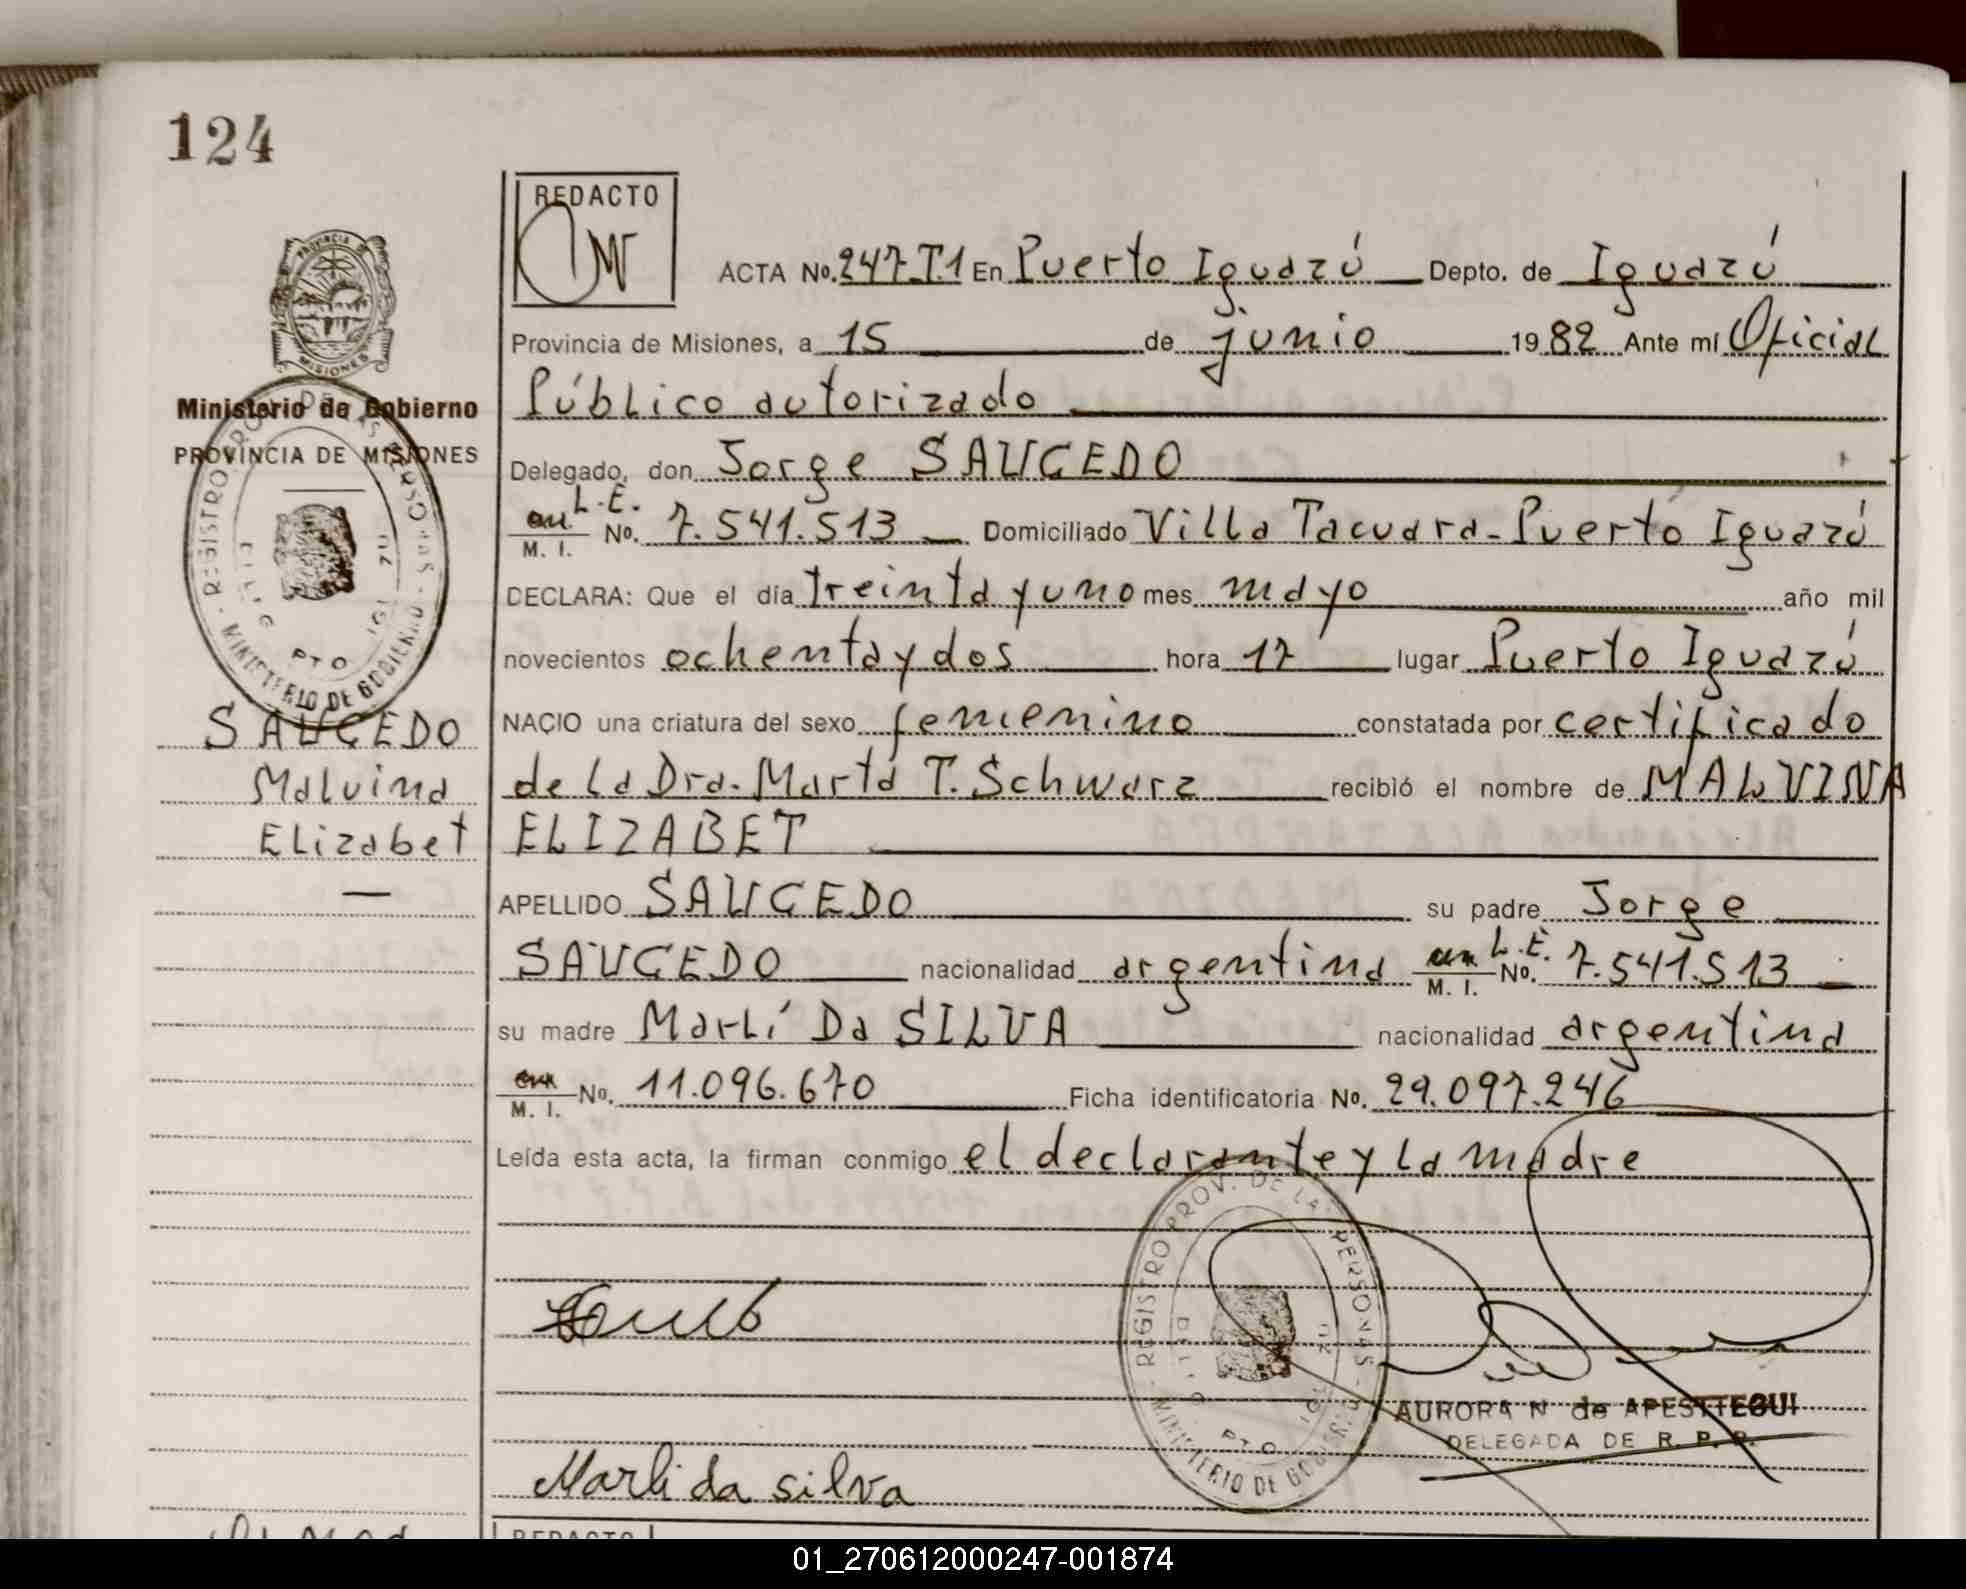 124
REDACTO
ACTA No. 247-T.1 En Puerto Iguazú Depto. de Iguazú
Provincia de Misiones, a 15 de junio 1982 Ante mí Oficial
Público autorizado
Delegado, don Jorge SAUCEDO
L.E.
M. I. No. 7.541.513 Domiciliado Villa Tacuara-Puerto Iguazú
DECLARA: Que el día treinta y uno mes mayo año mil
novecientos ochenta y dos hora 17 lugar Puerto Iguazú
NACIO una criatura del sexo femenino constatada por certificado
de la Dra. Marta T. Schwarz recibió el nombre de MALVINA
ELIZABET
APELLIDO SAUCEDO su padre Jorge
SAUCEDO nacionalidad argentina L.E. M. I. No. 7.541.513
su madre Marlí Da SILVA nacionalidad argentina
M. I. No. 11.096.670 Ficha identificatoria No. 29.097.246
Leída esta acta, la firman conmigo el declarante y la madre
Marli da silva
AURORA N de APESTTEGUI
DELEGADA DE R. P. P.
REGISTRO PROV. DE LAS PERSONAS
MINISTERIO DE GOBIERNO
PTO
PROVINCIA DE
MISIONES
Ministerio de Gobierno
PROVINCIA DE MISIONES
REGISTRO PROV. DE LAS PERSONAS
MINISTERIO DE GOBIERNO
PTO
SAUCEDO
Malvina
Elizabet
REDACTO
01_270612000247-001874